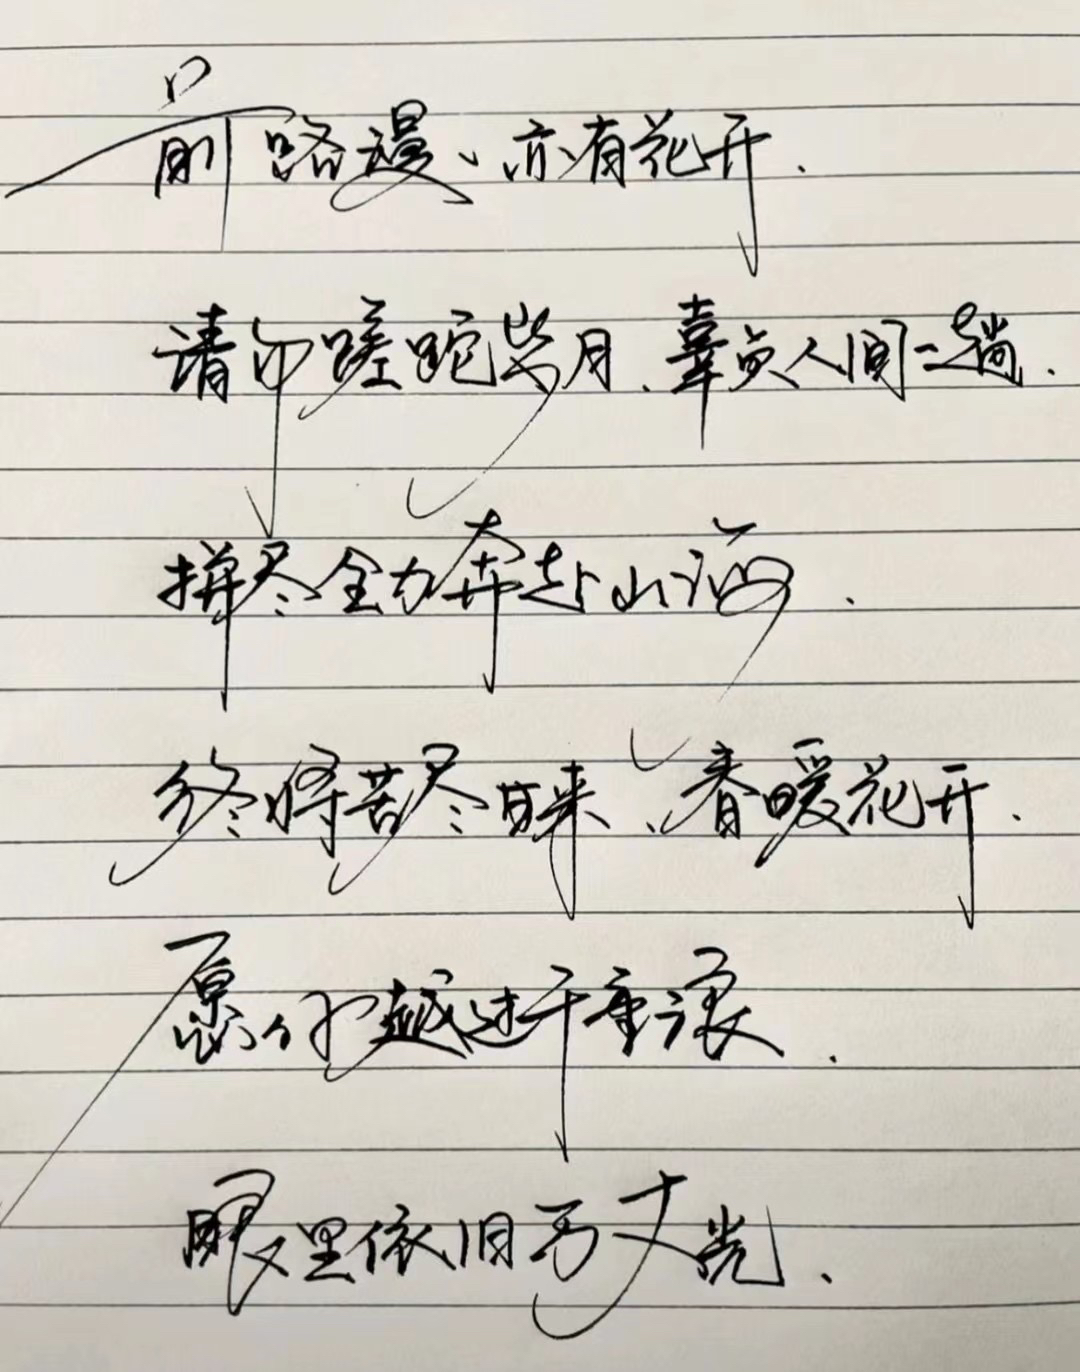 前路漫漫、亦有花开.
请勿蹉跎岁月、辜负人间一趟.
拼尽全力奔赴山海.
终将苦尽甘来、春暖花开.
愿你越过千重浪.
眼里依旧万丈光.